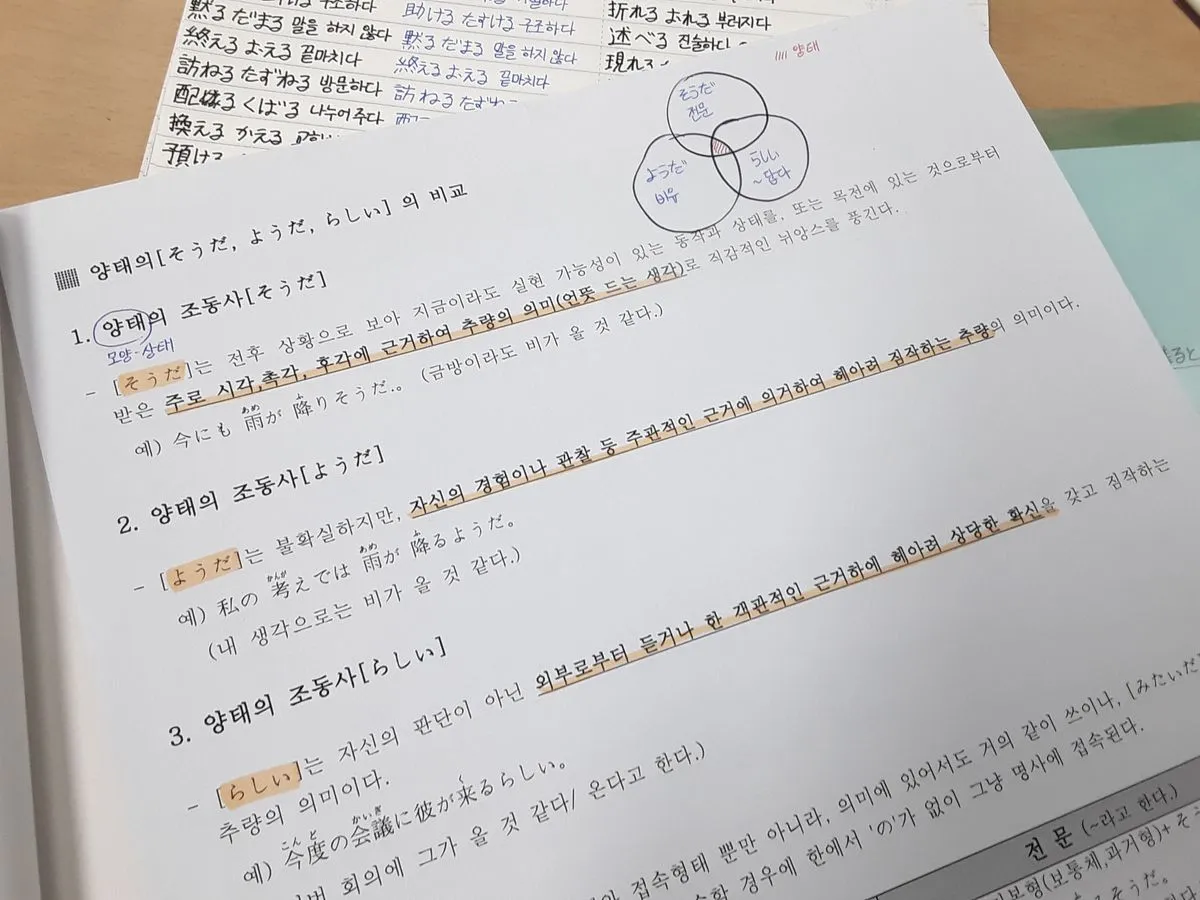 구조하다
黙る だまる 말을 하지 않다
終える おえる 끝마치다
訪ねる たずねる 방문하다
配ばる くばる 나누어 주다
換える かえる
預ける
助ける たすける 구조하다
黙る だまる 말을 하지 않다
終える おえる 끝마치다
訪ねる たずね
折れる おれる 부러지다
述べる 진술하다
現れる
양태
そうだ
전문
ようだ
비유
らしい
~답다
양태의[そうだ, ようだ, らしい]의 비교
1. 양태의 조동사[そうだ]
모양·상태
- [そうだ]는 전후 상황으로 보아 지금이라도 실현 가능성이 있는 동작과 상태를, 또는 목전에 있는 것으로부터
받은 주로 시각,촉각, 후각에 근거하여 추량의 의미(언뜻 드는 생각)로 직감적인 뉘앙스를 풍긴다.
예) 今にも 雨(あめ)が 降(ふ)りそうだ.。 (금방이라도 비가 올 것 같다.)
2. 양태의 조동사[ようだ]
- [ようだ]는 불확실하지만, 자신의 경험이나 관찰 등 주관적인 근거에 의거하여 헤아려 짐작하는 추량의 의미이다.
예) 私の 考(かんが)えでは 雨(あめ)が 降(ふ)るようだ。
(내 생각으로는 비가 올 것 같다.)
3. 양태의 조동사[らしい]
- [らしい]는 자신의 판단이 아닌 외부로부터 듣거나 한 객관적인 근거하에 헤아려 상당한 확신을 갖고 짐작하는
추량의 의미이다.
예) 今度(こんど)の会議(かいぎ)に彼が来(く)るらしい。
회의에 그가 올 것 같다/ 온다고 한다.)
접속형태 뿐만 아니라, 의미에 있어서도 거의 같이 쓰이나, [みたいだ]
경우에 한에서 'の'가 없이 그냥 명사에 접속된다.
전 문 (~라고 한다.)
보형(보통체 과거형)+ そう
そうだ。